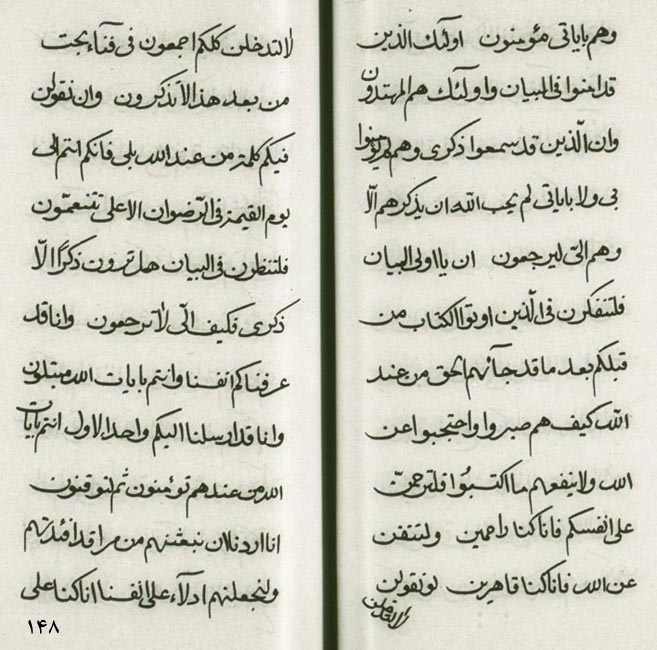 وهم باياتى مؤمنون اولئك الذين
قد امنوا فى البيان واولئك هم المهتدون
وان الّذين قد سمعوا ذكرى وهم لم يؤمنوا
بى ولا باياتى لم يحب الله ان يذكرهم الّا
وهم الىّ ليرجعون ان يا اولى البيان
فلتتفكرن فى الّذين اوتوا الكتاب من
قبلكم بعد ما قد جائهم الحق من عند
الله كيف هم صبروا واحتجبوا عن
الله ولا ينفعهم ما اكتسبوا فلترحمنّ
على انفسكم فانا كنا راحمين ولتتقن
عن الله فانا كنا قاهرين لو تقولن
لا لتدخلن كلكم اجمعون فى فناء بحت
من بعد هذا الا تذكرون وان تقولن
فيكم كلمة من عند الله بلى فانكم انتم الى
يوم القيمة فى الرّضوان الاعلى تتنعمّون
فلتنظرن فى البيان هل ترون ذكرًا الّا
ذكرى فكيف الىّ لا ترجعون وانا قد
عرفناكم انفسنا وانتم بايات الله مبتلون
وانا قد ارسلنا اليكم واحد الاول انتم بايات
الله من عندهم تؤمنون ثم لتوقنون
انا اردنا لان نبعثنهم من مراقد افئدتهم
ولنجعلنهم ادلاء على انفسنا انا كنا على
١٤٨